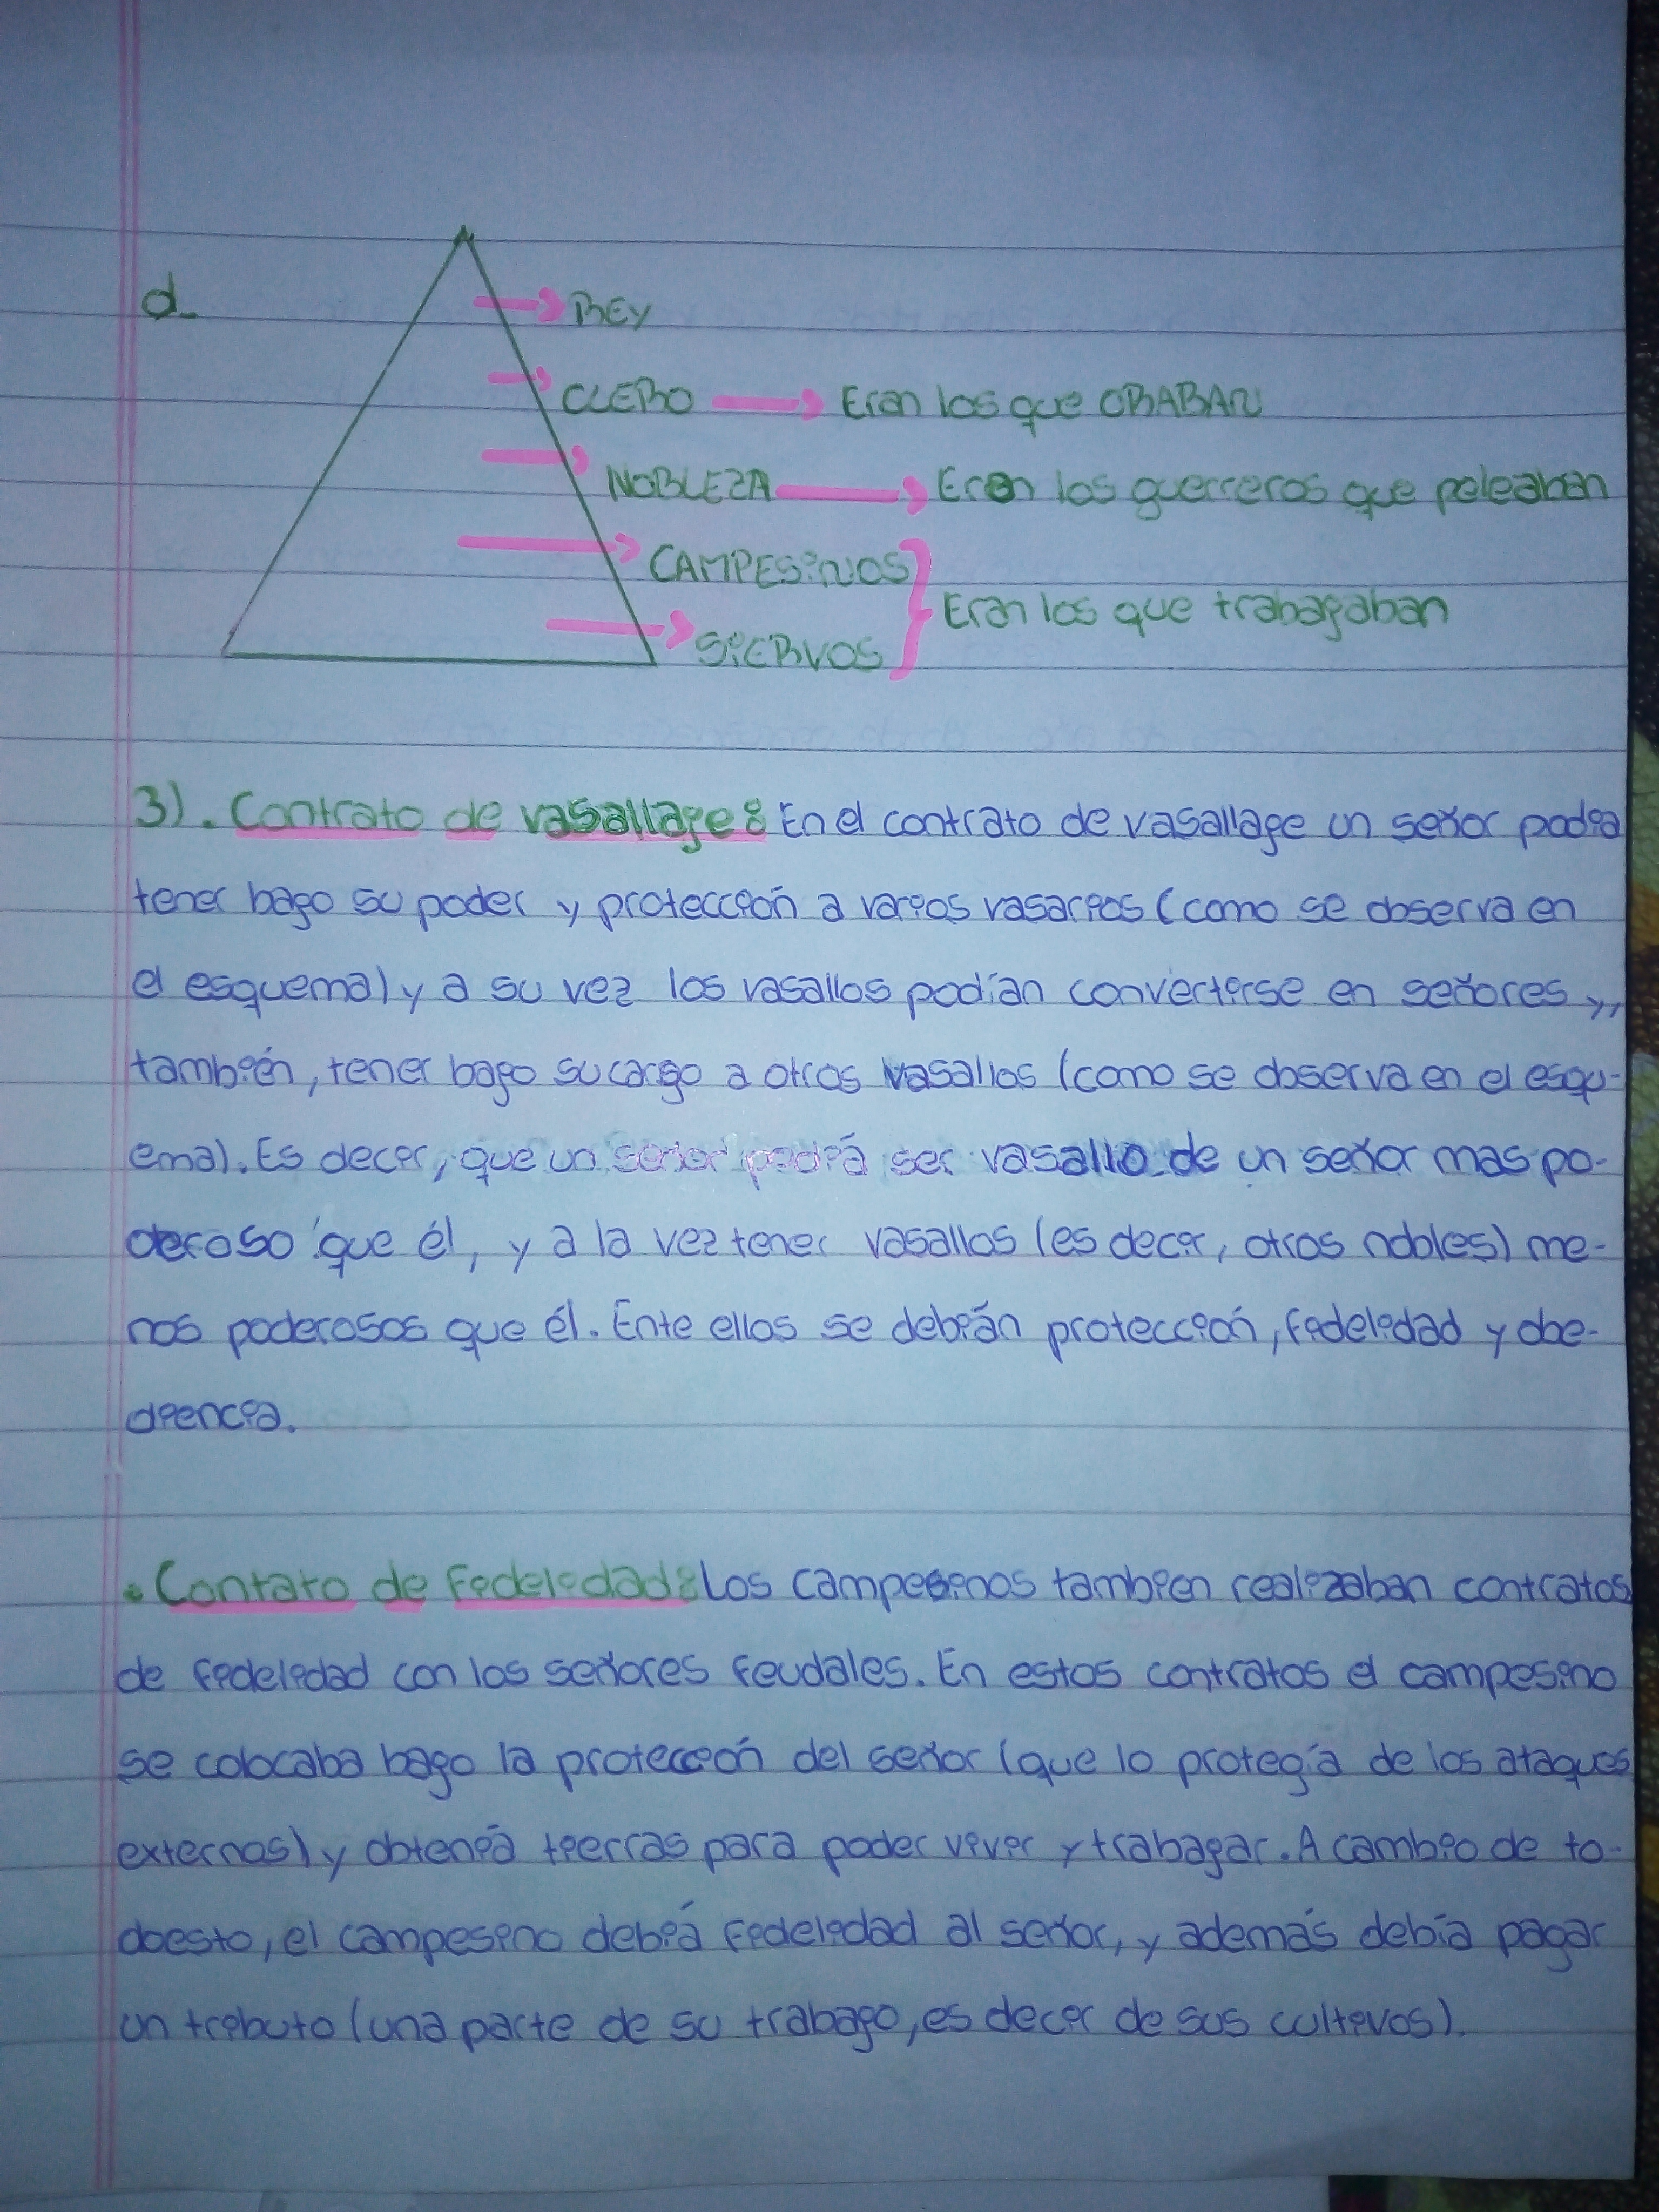 d_
REY
CLERO → Eran los que ORABAN
NOBLEZA → Eran los guerreros que peleaban
CAMPESiNOS
Eran los que trabajaban
SiERVOS
3). Contrato de vasallaje: En el contrato de vasallaje un señor podia
tener bajo su poder y protección a varios vasarios (como se observa en
el esquema) y a su vez los vasallos podían convertirse en señores y,
también, tener bajo su cargo a otros vasallos (como se observa en el esqu-
ema). Es decir, que un señor podiá ser vasallo de un señor mas po-
deroso que él, y a la vez tener vasallos (es decir, otros nobles) me-
nos poderosos que él. Ente ellos se debián protección, fidelidad y obe-
diencia.
• Contrato de fidelidad: Los campesinos tambien realizaban contratos
de fidelidad con los señores feudales. En estos contratos el campesino
se colocaba bajo la protección del señor (que lo protegía de los ataques
externos) y obteniá tierras para poder vivir y trabajar. A cambio de to-
do esto, el campesino debiá fidelidad al señor, y además debía pagar
un tributo (una parte de su trabajo, es decir de sus cultivos).